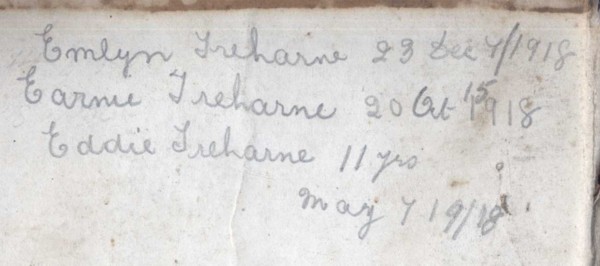 Emlyn Treharne 23 Dec 7/1918
Earnie Treharne 20 Oct 15 1918
Eddie Treharne 11 yrs
May 7 19/18